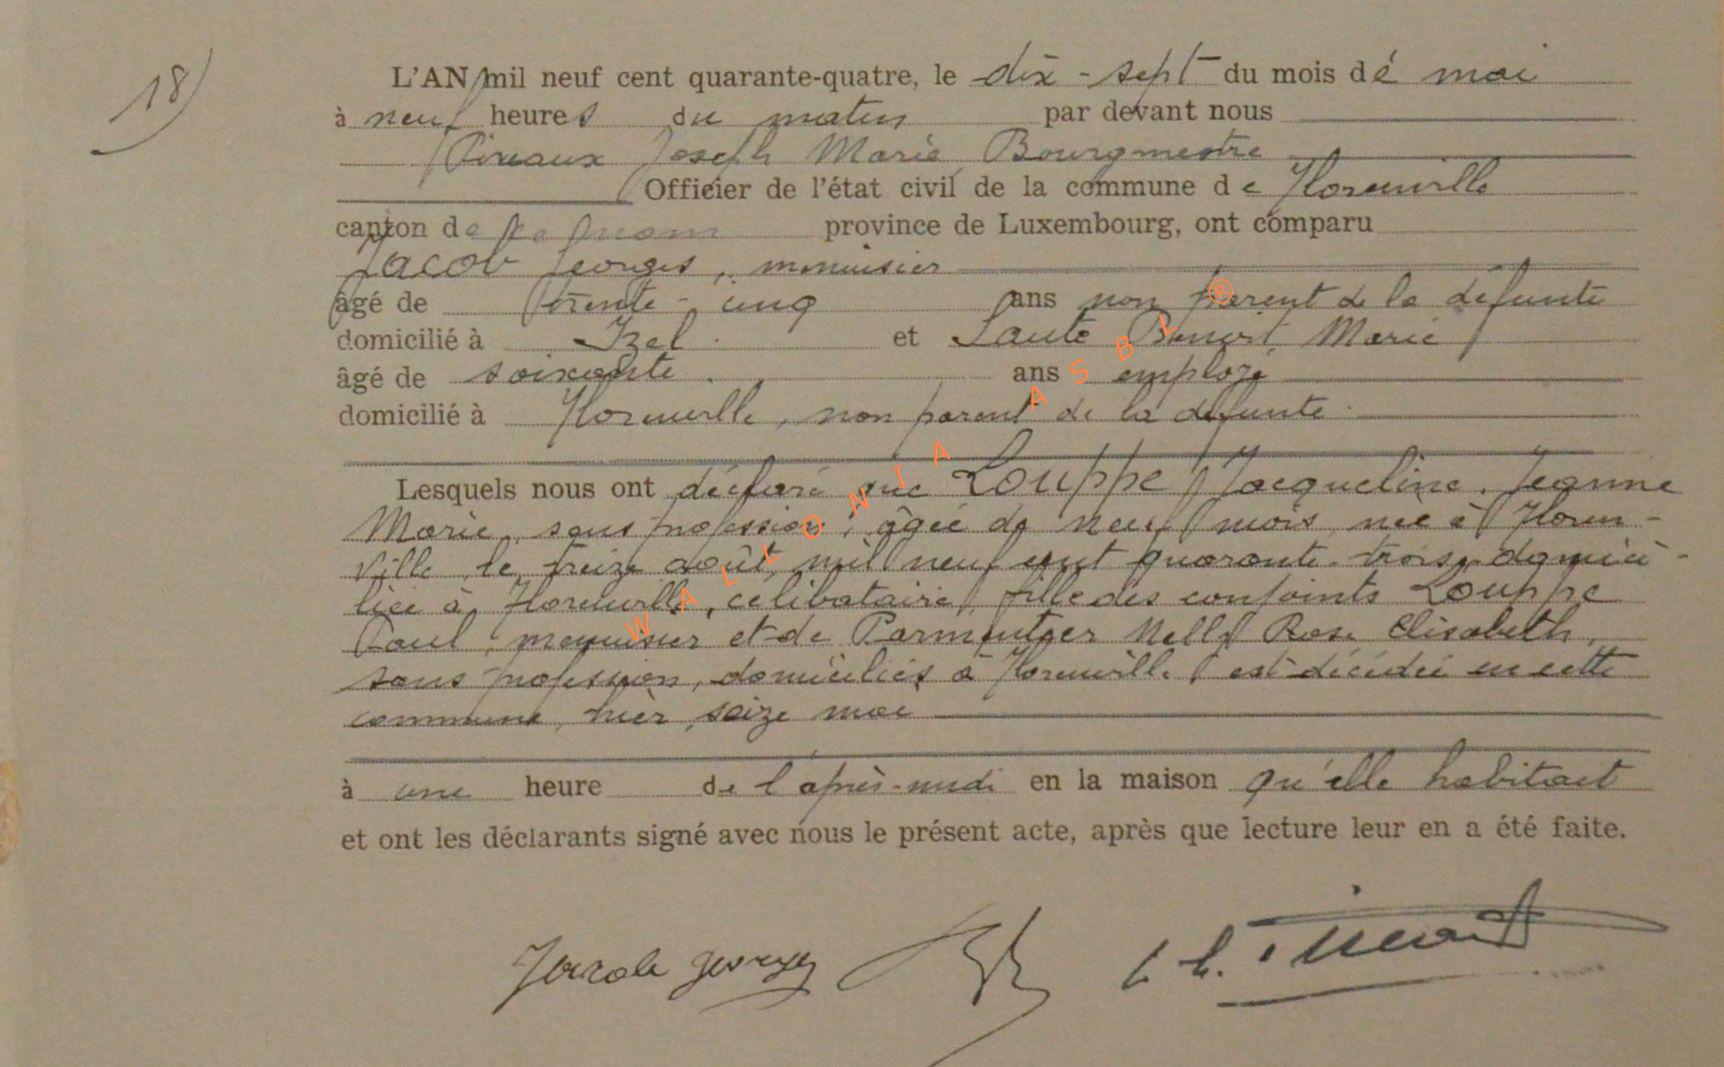 18)
L'AN mil neuf cent quarante-quatre, le dix-sept du mois de mai
à neuf heures du matin par devant nous
Joseph Marie Bourgmestre
Officier de l'état civil de la commune de Florenville
canton de province de Luxembourg, ont comparu
Jacob Georges, menuisier
âgé de trente-cinq ans non parent de la défunte
domicilié à Izel. et Laute Benoit Marie
âgé de soixante. ans employé
domicilié à Florenville, non parent de la défunte.
Lesquels nous ont déclaré que Louppe Jacqueline, Jeanne
Marie, sans profession, âgée de neuf mois, née à Floren-
ville le treize août mil neuf cent quarante-trois, domici-
liée à Florenville, célibataire, fille des conjoints Louppe
Paul, menuisier et de Parmentier Nelly Rose Elisabeth,
sans profession, domiciliés à Florenville est décédée en cette
commune, hier, seize mai
à une heure de l'après-midi en la maison qu'elle habitait
et ont les déclarants signé avec nous le présent acte, après que lecture leur en a été faite.
Jacob Georges
WALLONIA ASBL ®